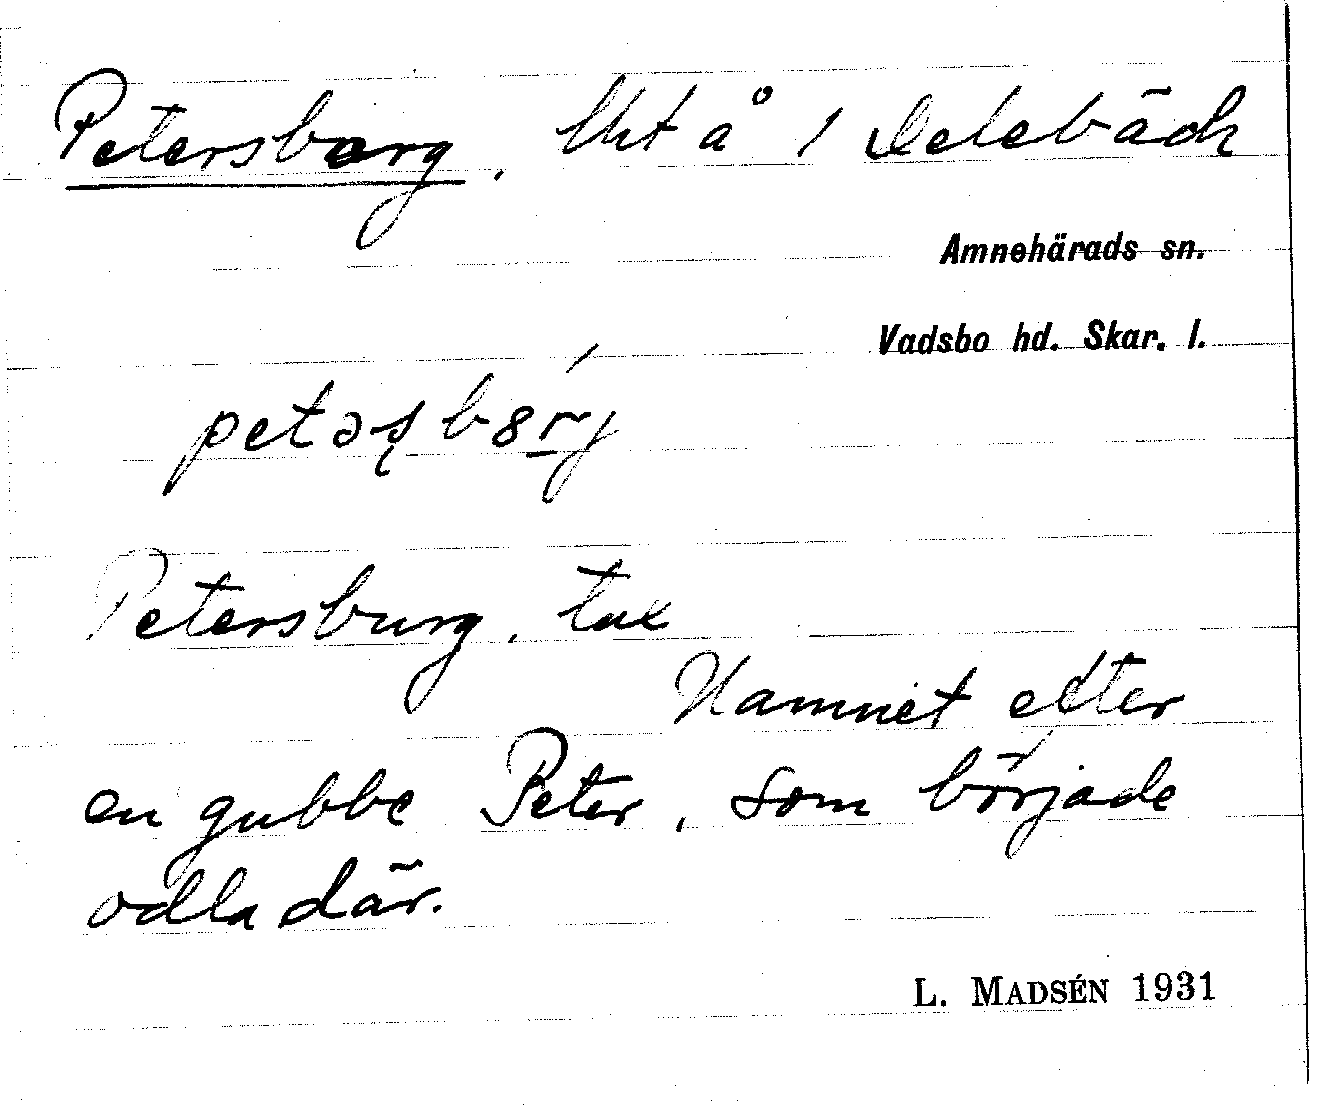 Petersborg. lht å 1 Delebäck
Amnehärads sn.
Vadsbo hd. Skar. l.
Petersburg. tax
Namnet efter
en gubbe Peter, som började
odla där.
L. MADSÉN 1931